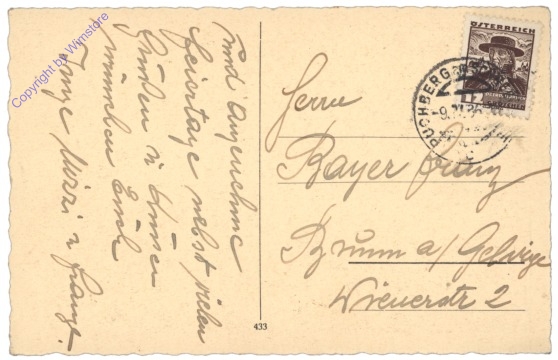 Und angenehme
Feiertage nebst vielen
Grüßen u Küssen
wünschen Euch
Inge Mizzi u Franzl.
433
Herrn
Bayer Franz
Brunn a/Gebirge
Wienerstr 2
ÖSTERREICH
PUCHBERG
Copyright by Wimstore